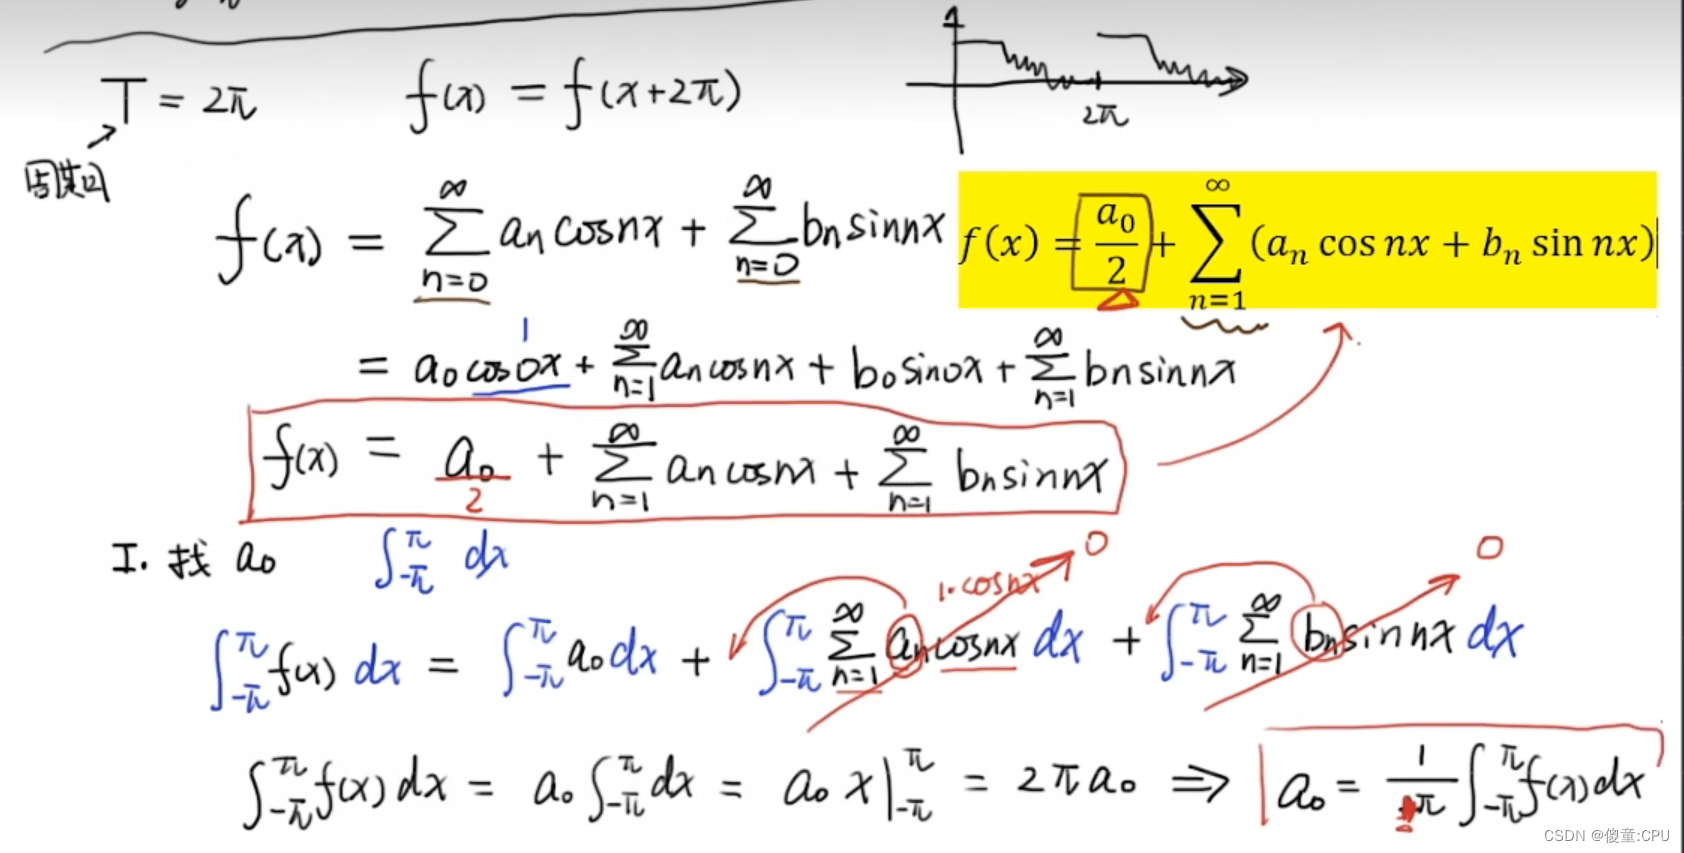 T = 2π    f(x) = f(x+2π)
2π
周期
f(x) = ∑_{n=0}^{∞} an cosnx + ∑_{n=0}^{∞} bn sinnx
f(x) = a₀/2 + ∑_{n=1}^{∞} (aₙ cos nx + bₙ sin nx)
1
= a₀ cos0x + ∑_{n=1}^{∞} an cosnx + b₀ sin0x + ∑_{n=1}^{∞} bn sinnx
f(x) = a₀/2 + ∑_{n=1}^{∞} an cosnx + ∑_{n=1}^{∞} bn sinnx
I. 找 a₀    ∫_{-π}^{π} dx
1·cosnx    0    0
∫_{-π}^{π} f(x) dx = ∫_{-π}^{π} a₀ dx + ∫_{-π}^{π} ∑_{n=1}^{∞} an cosnx dx + ∫_{-π}^{π} ∑_{n=1}^{∞} bn sinnx dx
∫_{-π}^{π} f(x) dx = a₀ ∫_{-π}^{π} dx = a₀ x |_{-π}^{π} = 2π a₀ ⇒ a₀ = 1/π ∫_{-π}^{π} f(x) dx
CSDN @傻童:CPU